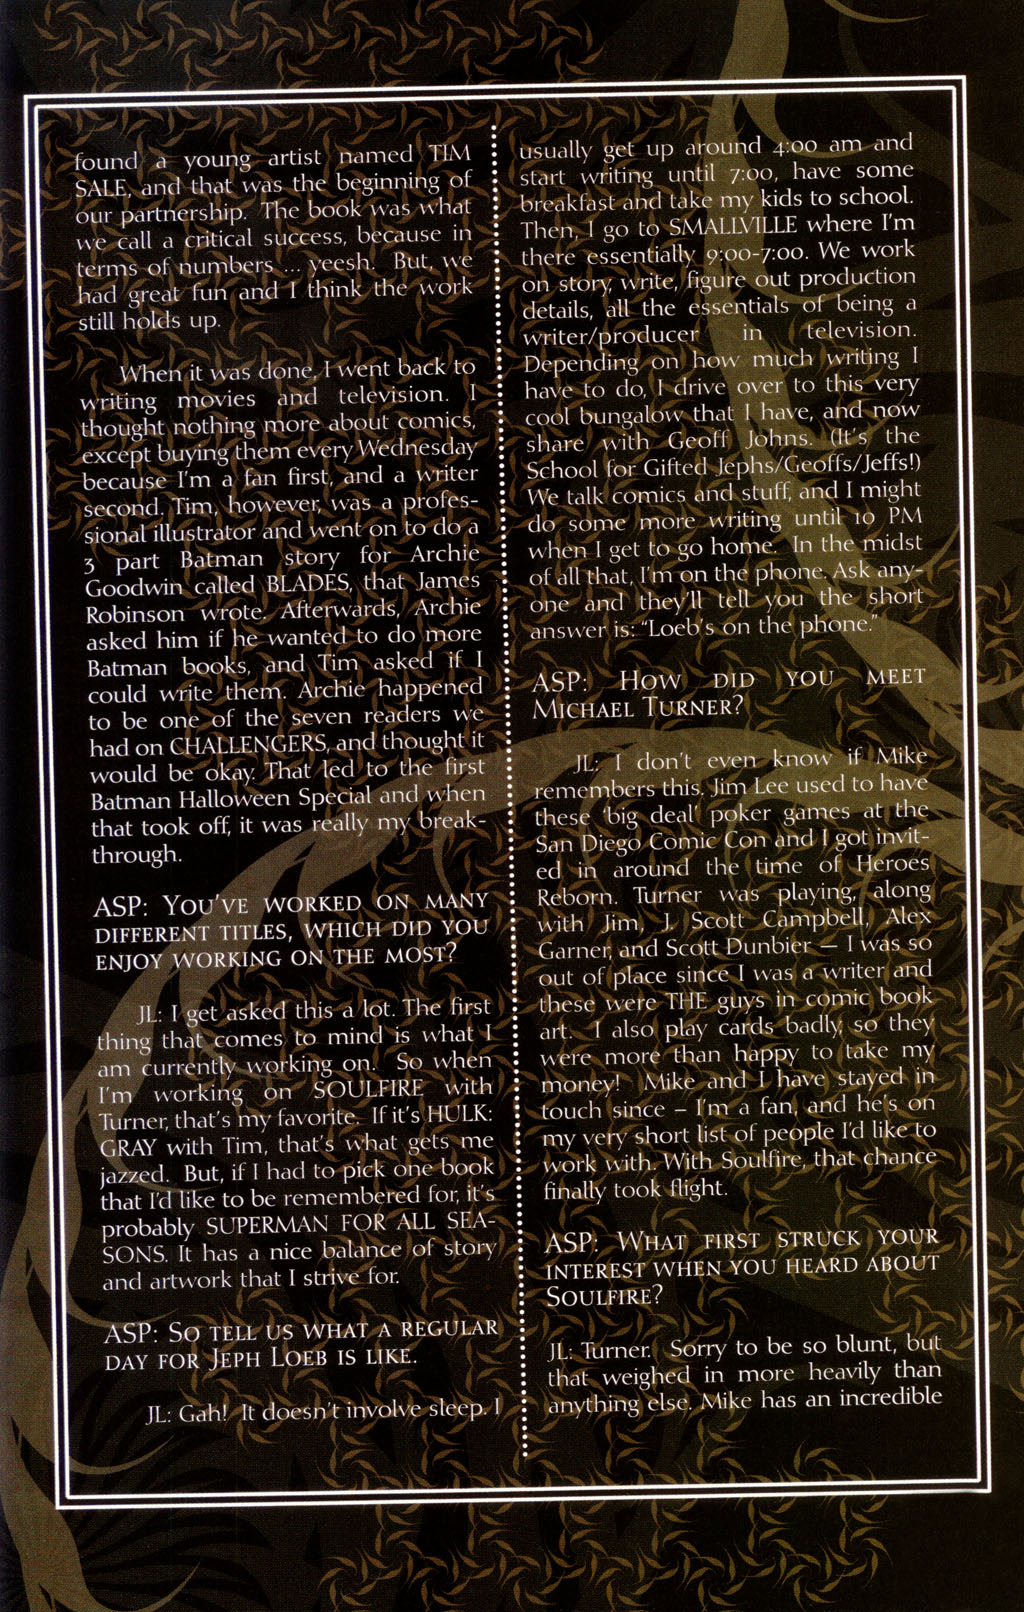 found a young artist named TIM
SALE, and that was the beginning of
our partnership. The book was what
we call a critical success, because in
terms of numbers ... yeesh. But, we
had great fun and I think the work
still holds up.
When it was done, I went back to
writing movies and television. I
thought nothing more about comics,
except buying them every Wednesday
because I'm a fan first, and a writer
second. Tim, however, was a profes-
sional illustrator and went on to do a
3 part Batman story for Archie
Goodwin called BLADES, that James
Robinson wrote. Afterwards, Archie
asked him if he wanted to do more
Batman books, and Tim asked if I
could write them. Archie happened
to be one of the seven readers we
had on CHALLENGERS, and thought it
would be okay. That led to the first
Batman Halloween Special and when
that took off, it was really my break-
through.
ASP: YOU'VE WORKED ON MANY
DIFFERENT TITLES, WHICH DID YOU
ENJOY WORKING ON THE MOST?
JL: I get asked this a lot. The first
thing that comes to mind is what I
am currently working on. So when
I'm working on SOULFIRE with
Turner, that's my favorite. If it's HULK:
GRAY with Tim, that's what gets me
jazzed. But, if I had to pick one book
that I'd like to be remembered for, it's
probably SUPERMAN FOR ALL SEA-
SONS. It has a nice balance of story
and artwork that I strive for.
ASP: SO TELL US WHAT A REGULAR
DAY FOR JEPH LOEB IS LIKE.
JL: Gah! It doesn't involve sleep. I
usually get up around 4:00 am and
start writing until 7:00, have some
breakfast and take my kids to school.
Then, I go to SMALLVILLE where I'm
there essentially 9:00-7:00. We work
on story, write, figure out production
details, all the essentials of being a
writer/producer in television.
Depending on how much writing I
have to do, I drive over to this very
cool bungalow that I have, and now
share with Geoff Johns. (It's the
School for Gifted Jephs/Geoffs/Jeffs!)
We talk comics and stuff, and I might
do some more writing until 10 PM
when I get to go home. In the midst
of all that, I'm on the phone. Ask any-
one and they'll tell you the short
answer is: "Loeb's on the phone."
ASP: HOW DID YOU MEET
MICHAEL TURNER?
JL: I don't even know if Mike
remembers this. Jim Lee used to have
these 'big deal' poker games at the
San Diego Comic Con and I got invit-
ed in around the time of Heroes
Reborn. Turner was playing, along
with Jim, J. Scott Campbell, Alex
Garner, and Scott Dunbier — I was so
out of place since I was a writer and
these were THE guys in comic book
art. I also play cards badly, so they
were more than happy to take my
money! Mike and I have stayed in
touch since – I'm a fan, and he's on
my very short list of people I'd like to
work with. With Soulfire, that chance
finally took flight.
ASP: WHAT FIRST STRUCK YOUR
INTEREST WHEN YOU HEARD ABOUT
SOULFIRE?
JL: Turner. Sorry to be so blunt, but
that weighed in more heavily than
anything else. Mike has an incredible